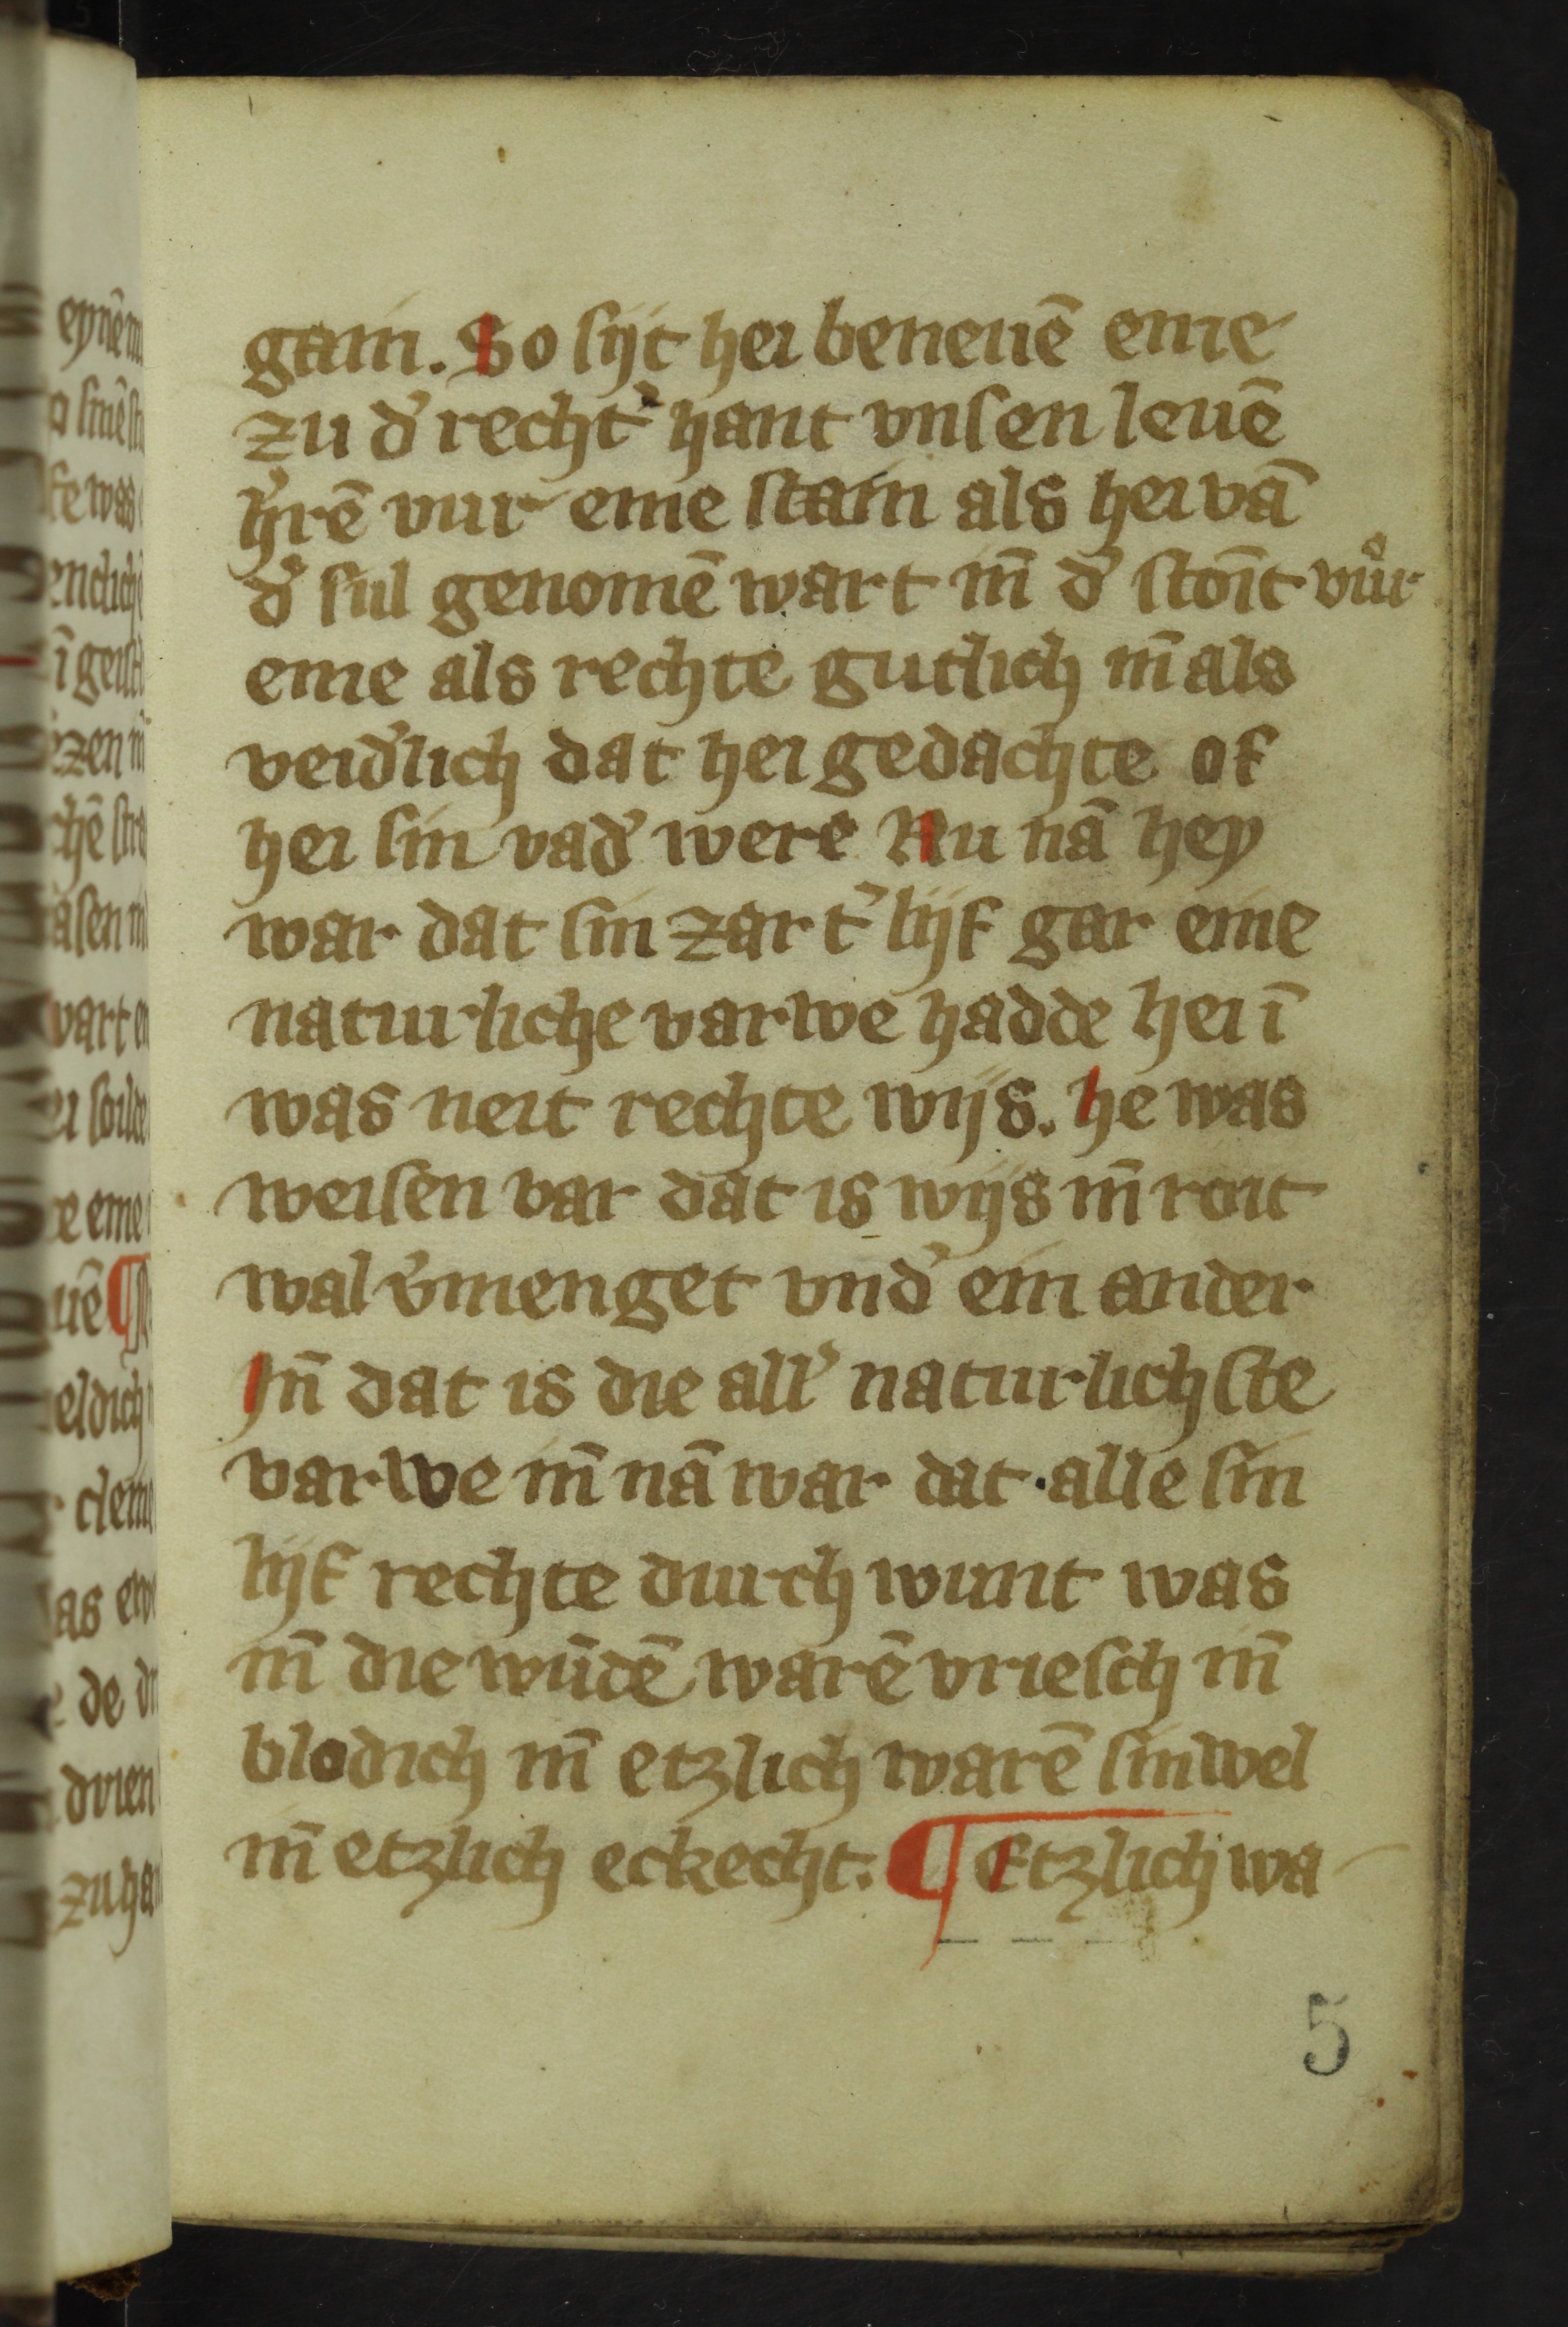 gain. So sijt hei beneuē eme
zu d' recht' hant vnsen leuē
h'rē vur eme stain als hei vā
d' sul genomē wart iñ d' stoīt vůr
eme als rechte gutlich iñ als
veid'lich dat hei gedachte of
hei sin vad' were Nu nā hey
war dat sin zart' lijf gar eine
naturliche varwe hadde hei ī
was neit rechte wijs. he was
weisen var dat is wijs iñ roit
wal v'menget vnd' ein ander
Iñ dat is die all' naturlichste
varwe iñ nā war dat alle sin
lijf rechte durch wunt was
iñ die wūdē warē vriesch iñ
blodich iñ etzlich warē sinwel
iñ etzlich eckecht. ¶ Etzlich wa
5